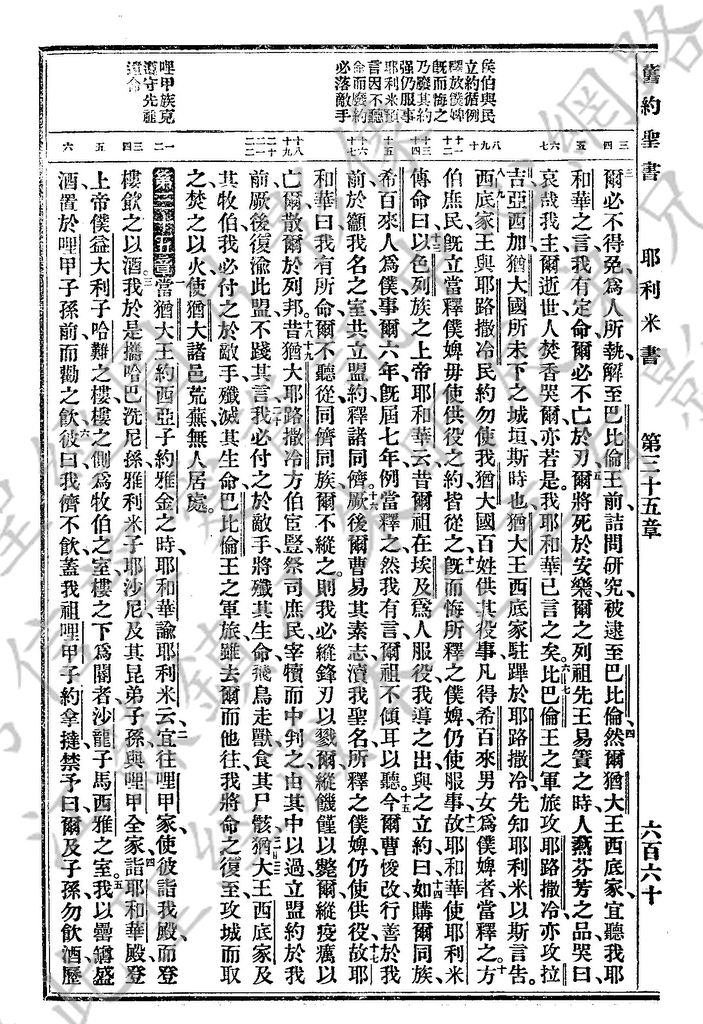 舊約聖書 耶利米書 第三十五章 六百六十
侯伯與民
立約循例
釋放僕婢
旣而悔之
乃廢其約
强仍服事
耶利米預
言因不聽
命而廢約
必落敵手
哩甲族克
遵守先
遺命
爾必不得免、爲人所執、解至巴比倫王前、詰問研究、被逮至巴比倫、然爾猶大王西底家、宜聽我耶
和華之言、我有定命、爾必不亡於刃、爾將死於安樂、爾之列祖先王易簀之時、人爇芬芳之品、哭曰、
哀哉我主、爾逝世、人焚香哭爾亦若是、我耶和華已言之矣。比巴倫王之軍旅攻耶路撒冷、亦攻拉
吉亞西加、猶大國所未下之城垣、斯時也、猶大王西底家駐蹕於耶路撒冷、先知耶利米以斯言告。
西底家王與耶路撒冷民約、勿使我猶大國百姓供其役事、凡得希百來男女爲僕婢者、當釋之、方
伯庶民旣立當釋僕婢毋使供役之約、皆從之、旣而悔所釋之僕婢、仍使服事、故耶和華使耶利米
傳命曰、以色列族之上帝耶和華云、昔爾祖在埃及爲人服役、我導之出、與之立約曰、如購爾同族、
希百來人爲僕、事爾六年、旣屆七年、例當釋之、然我有言、爾祖不傾耳以聽。今爾曹悛改、行善於我
前、於籲我名之室、共立盟約、釋諸同儕。厥後爾曹易其素志、瀆我聖名、所釋之僕婢、仍使供役、故耶
和華曰、我有所命、爾不聽從、同儕同族、爾不縱之、則我必縱鋒刃以戮爾、縱饑饉以斃爾、縱疫癘以
亡爾、散爾於列邦。昔猶大耶路撒冷方伯宦豎祭司庶民、宰犢而中判之、由其中以過、立盟約於我
前、厥後復渝此盟、不踐其言、我必付之於敵手、將殲其生命、飛鳥走獸食其尸骸、猶大王西底家、及
其牧伯、我必付之於敵手、殲滅其生命、巴比倫王之軍旅、雖去爾而他往、我將命之復至、攻城而取
之、焚之以火、使猶大諸邑荒蕪、無人居處。
第三十五章 當猶大王約西亞子約雅金之時、耶和華諭耶利米云、宜往哩甲家、使彼詣我殿、而登
樓、飲之以酒。我於是攜哈巴洗尼孫、雅利米子、耶沙尼、及其昆弟子孫、與哩甲全家、詣耶和華殿、登
上帝僕益大利子哈難之樓、樓之側爲牧伯之室、樓之下爲閽者沙龍子馬西雅之室。我以罍罇盛
酒、置於哩甲子孫前、而勸之飲、彼曰、我儕不飲、蓋我祖哩甲子約拿撻禁予曰、爾及子孫勿飲酒、歷